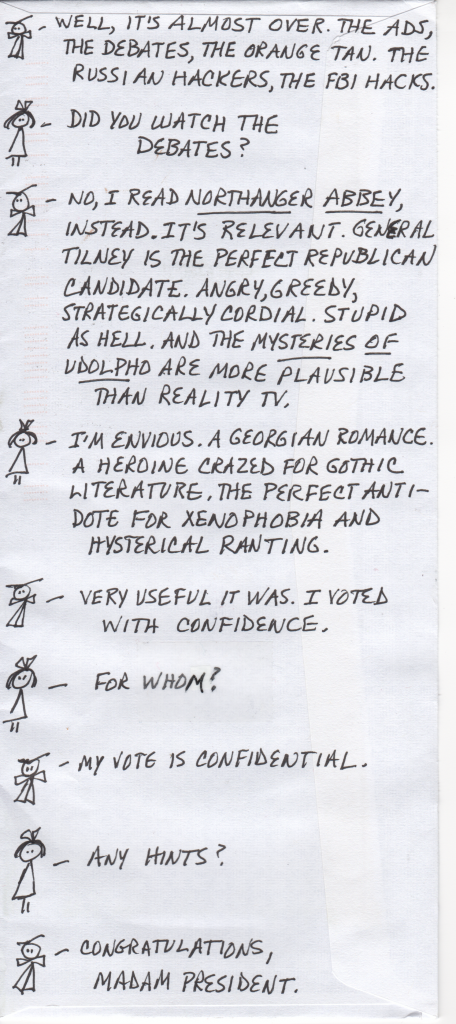 - WELL, IT'S ALMOST OVER. THE ADS,
THE DEBATES, THE ORANGE TAN. THE
RUSSIAN HACKERS, THE FBI HACKS.
- DID YOU WATCH THE
DEBATES?
- NO, I READ NORTHANGER ABBEY,
INSTEAD. IT'S RELEVANT. GENERAL
TILNEY IS THE PERFECT REPUBLICAN
CANDIDATE. ANGRY, GREEDY,
STRATEGICALLY CORDIAL. STUPID
AS HELL. AND THE MYSTERIES OF
UDOLPHO ARE MORE PLAUSIBLE
THAN REALITY TV.
- I'M ENVIOUS. A GEORGIAN ROMANCE.
A HEROINE CRAZED FOR GOTHIC
LITERATURE. THE PERFECT ANTI-
DOTE FOR XENOPHOBIA AND
HYSTERICAL RANTING.
- VERY USEFUL IT WAS. I VOTED
WITH CONFIDENCE.
- FOR WHOM?
- MY VOTE IS CONFIDENTIAL.
- ANY HINTS?
- CONGRATULATIONS,
MADAM PRESIDENT.